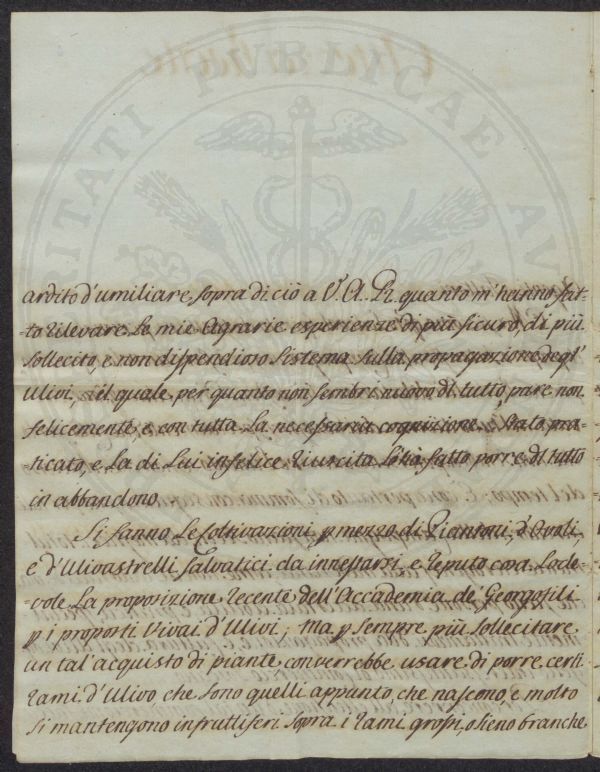 PUBLICAE
ardito d'umiliare, sopra di ciò a V. A. R. quanto m'hanno fat-
=to rilevare le mie Agrarie esperienze di più sicuro, di più
sollecito, e non dispendioso sistema sulla propagazione degl'
Ulivi, il quale, per quanto non sembri nuovo dl tutto, pare non
felicemente, e con tutta la necessaria cognizione è stato pra-
=ticato, e la di Lui infelice riuscita l'ha fatto porre dl tutto
in abbandono.
Si fanno le Coltivazioni p mezzo di Piantoni, d'Ovoli
e d'Ulivastrelli salvatici da innestarsi, e reputo cosa lode-
=vole la proposizione recente dell'Accademia de Georgofili
p i proposti Vivai d'Ulivi; Ma p sempre più sollecitare
un tal'acquisto di piante converrebbe usare di porre certi
rami d'Ulivo che sono quelli appunto, che nascono, e molto
si mantengono infruttiferi sopra i rami grossi, o sieno branche